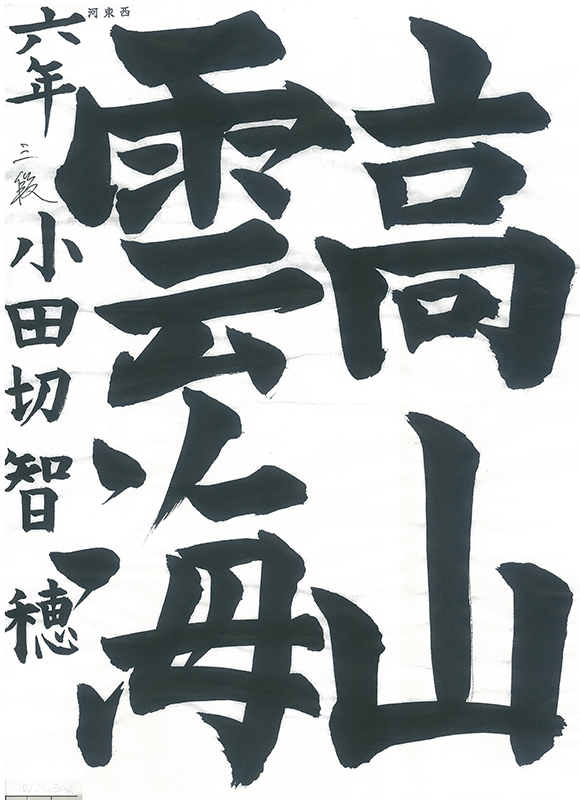 高山
雲海
西東河
六年 三段 小田切智穂